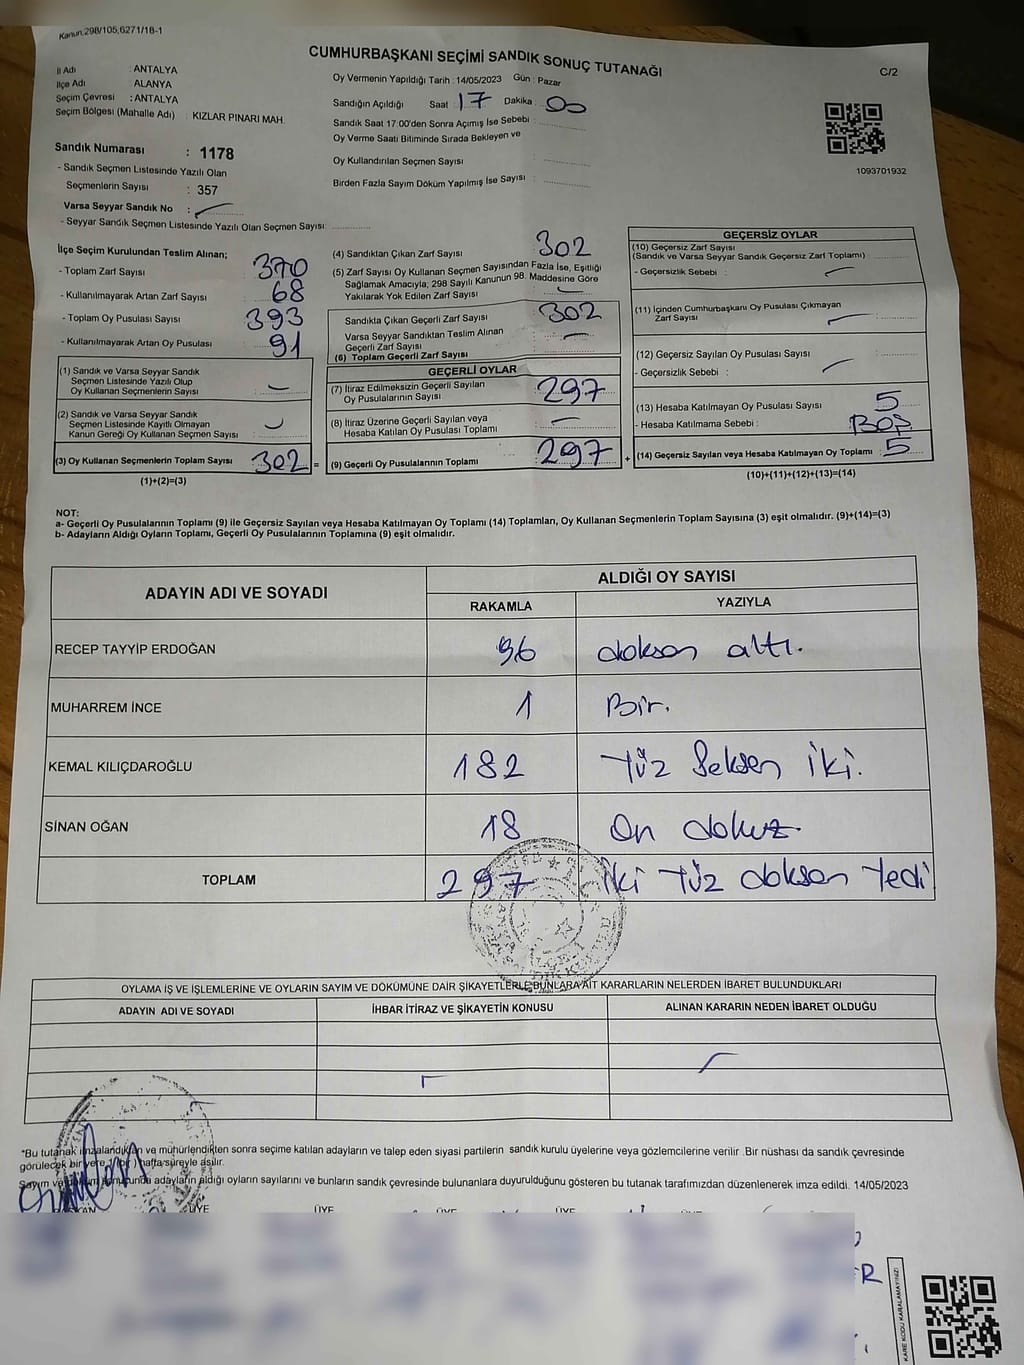 Kanun.298/105,6271/18-1
CUMHURBAŞKANI SEÇİMİ SANDIK SONUÇ TUTANAĞI
C/2
İl Adı : ANTALYA
İlçe Adı : ALANYA
Seçim Çevresi : ANTALYA
Seçim Bölgesi (Mahalle Adı) : KIZLAR PINARI MAH.
Oy Vermenin Yapıldığı Tarih : 14/05/2023 Gün : Pazar
Sandığın Açıldığı Saat : 17 Dakika : 00
Sandık Saat 17:00'den Sonra Açımış İse Sebebi :
Oy Verme Saati Bitiminde Sırada Bekleyen ve
Oy Kullandırılan Seçmen Sayısı :
Birden Fazla Sayım Döküm Yapılmış İse Sayısı :
1093701932
Sandık Numarası : 1178
- Sandık Seçmen Listesinde Yazılı Olan
Seçmenlerin Sayısı : 357
Varsa Seyyar Sandık No :
- Seyyar Sandık Seçmen Listesinde Yazılı Olan Seçmen Sayısı:
İlçe Seçim Kurulundan Teslim Alınan;
- Toplam Zarf Sayısı : 370
- Kullanılmayarak Artan Zarf Sayısı : 68
- Toplam Oy Pusulası Sayısı : 393
- Kullanılmayarak Artan Oy Pusulası : 91
(1) Sandık ve Varsa Seyyar Sandık
Seçmen Listesinde Yazılı Olup
Oy Kullanan Seçmenlerin Sayısı :
(2) Sandık ve Varsa Seyyar Sandık
Seçmen Listesinde Kayıtlı Olmayan
Kanun Gereği Oy Kullanan Seçmen Sayısı :
(3) Oy Kullanan Seçmenlerin Toplam Sayısı : 302 =
(1)+(2)=(3)
(4) Sandıktan Çıkan Zarf Sayısı : 302
(5) Zarf Sayısı Oy Kullanan Seçmen Sayısından Fazla İse, Eşitliği
Sağlamak Amacıyla; 298 Sayılı Kanunun 98. Maddesine Göre
Yakılarak Yok Edilen Zarf Sayısı :
Sandıkta Çıkan Geçerli Zarf Sayısı : 302
Varsa Seyyar Sandıktan Teslim Alınan
Geçerli Zarf Sayısı :
(6) Toplam Geçerli Zarf Sayısı :
GEÇERLİ OYLAR
(7) İtiraz Edilmeksizin Geçerli Sayılan
Oy Pusulalarının Sayısı : 297
(8) İtiraz Üzerine Geçerli Sayılan veya
Hesaba Katılan Oy Pusulası Toplamı :
(9) Geçerli Oy Pusulalarının Toplamı : 297 +
GEÇERSİZ OYLAR
(10) Geçersiz Zarf Sayısı
(Sandık ve Varsa Seyyar Sandık Geçersiz Zarf Toplamı) :
- Geçersizlik Sebebi :
(11) İçinden Cumhurbaşkanı Oy Pusulası Çıkmayan
Zarf Sayısı :
(12) Geçersiz Sayılan Oy Pusulası Sayısı :
- Geçersizlik Sebebi :
(13) Hesaba Katılmayan Oy Pusulası Sayısı : 5
- Hesaba Katılmama Sebebi : BOŞ
(14) Geçersiz Sayılan veya Hesaba Katılmayan Oy Toplamı : 5
(10)+(11)+(12)+(13)=(14)
NOT:
a- Geçerli Oy Pusulalarının Toplamı (9) ile Geçersiz Sayılan veya Hesaba Katılmayan Oy Toplamı (14) Toplamları, Oy Kullanan Seçmenlerin Toplam Sayısına (3) eşit olmalıdır. (9)+(14)=(3)
b- Adayların Aldığı Oyların Toplamı, Geçerli Oy Pusulalarının Toplamına (9) eşit olmalıdır.
ADAYIN ADI VE SOYADI
ALDIĞI OY SAYISI
RAKAMLA YAZIYLA
RECEP TAYYİP ERDOĞAN 96 doksan altı.
MUHARREM İNCE 1 Bir.
KEMAL KILIÇDAROĞLU 182 Yüz Seksen İki.
SİNAN OĞAN 18 On dokuz.
TOPLAM 297 İki Yüz doksan Yedi
OYLAMA İŞ VE İŞLEMLERİNE VE OYLARIN SAYIM VE DÖKÜMÜNE DAİR ŞİKAYETLERLE BUNLARA AİT KARARLARIN NELERDEN İBARET BULUNDUKLARI
ADAYIN ADI VE SOYADI İHBAR İTİRAZ VE ŞİKAYETİN KONUSU ALINAN KARARIN NEDEN İBARET OLDUĞU
*Bu tutanak imzalandıktan ve mühürlendikten sonra seçime katılan adayların ve talep eden siyasi partilerin sandık kurulu üyelerine veya gözlemcilerine verilir .Bir nüshası da sandık çevresinde
görülecek bir yere 1 (bir) hafta süreyle asılır.
Sayım ve döküm sonucunda adayların aldığı oyların sayılarını ve bunların sandık çevresinde bulunanlara duyurulduğunu gösteren bu tutanak tarafımızdan düzenlenerek imza edildi. 14/05/2023
ÜYE ÜYE ÜYE ÜYE ÜYE
KARE KODU KARALAMAYINIZ!